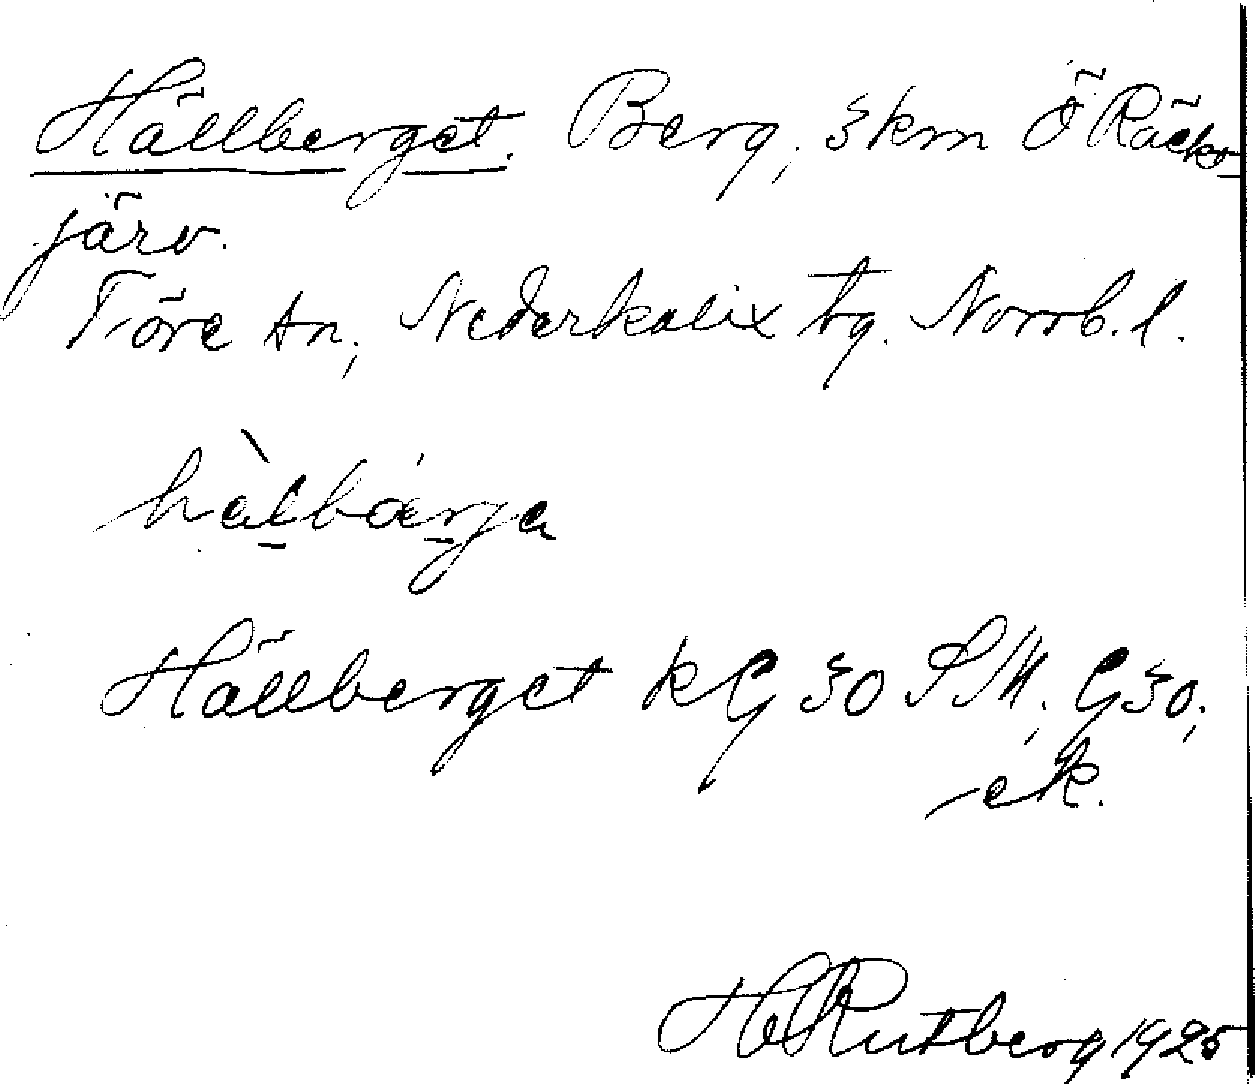 Hällberget. Berg, 3 km Ö Räck-
järv.
Töre sn, Nederkalix tg. Norrb. l.
hälbärja
Hällberget k G 30 SM, G 30;
ek.
H Rutberg 1925